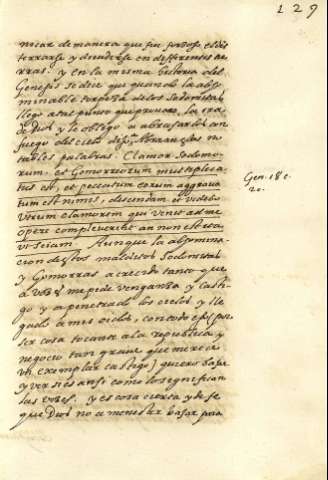 129
nicar de manera que fue forzoso el des
terrarse y dividirse en differentes tie
rras. y en la misma historia del
Genesis se dice que quando la abo
minable torpeza de los Sodomitas
llego a tal punto que provoco la ira
de Dios y le obligo a abrasarlos con
fuego del cielo
tables palabras: Clamor Sodomo
rum, et Gomorreorum multiplica
tus est, et peccatum eorum aggrava
tum est nimis, descendam et videbo
utrum clamorem qui venit ad me
opere compleverint an non est ita
ut sciam. Aunque la abomina
cion destos malditos Sodomitas
y Gomorras a crecido tanto que
a voces me pide venganza y casti
go y a penetrado los cielos y lle
gado a mis oidos, con todo eso por
ser cosa tocante a la republica y
negocio tan grave que merece
un exemplar castigo) quiero bajar
y ver si es ansi como lo significan
las voces. y es cosa cierta y de fe
que Dios no a menester bajar para
Gen. 18 c.
20.